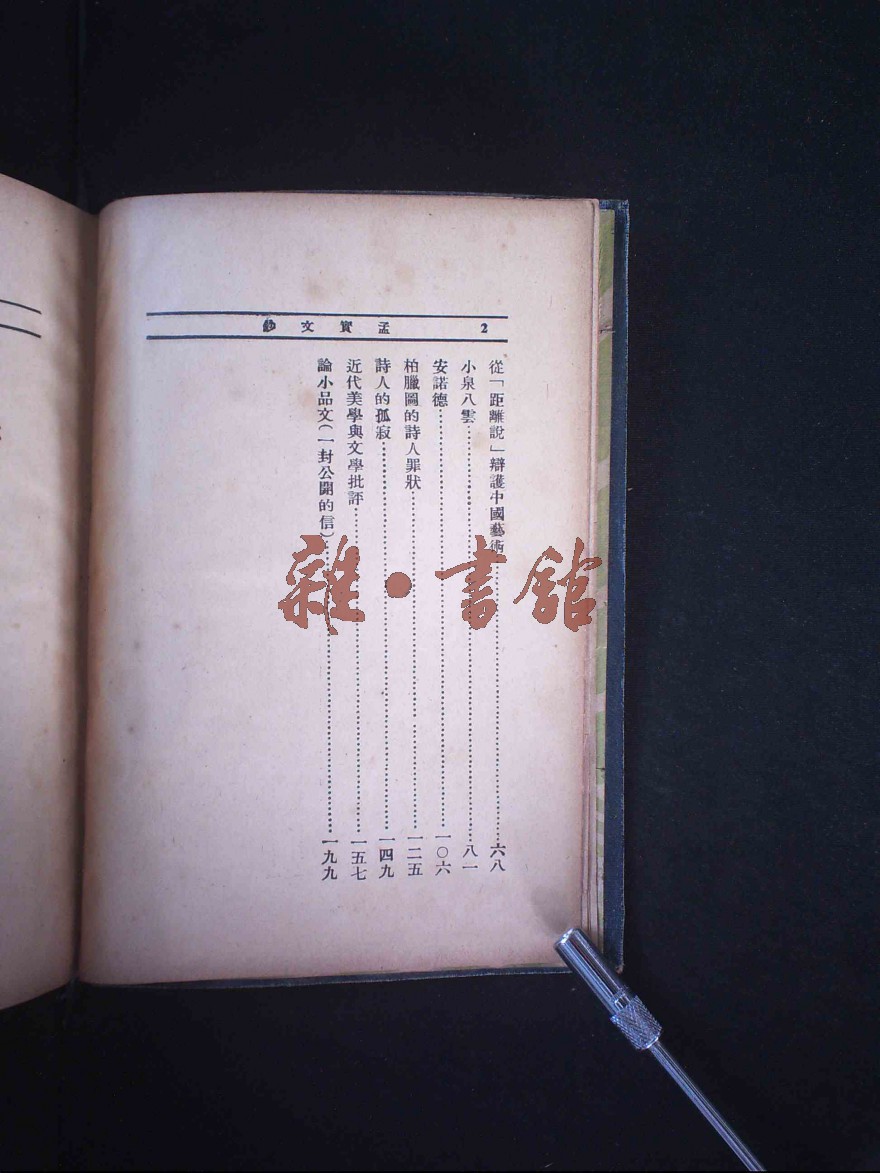 2 孟實文鈔
從「距離說」辯護中國藝術……六八
小泉八雲……八一
安諾德……一〇六
柏臘圖的詩人罪狀……一二五
詩人的孤寂……一四九
近代美學與文學批評……一五七
論小品文(一封公開的信)……一九九
雜·書館